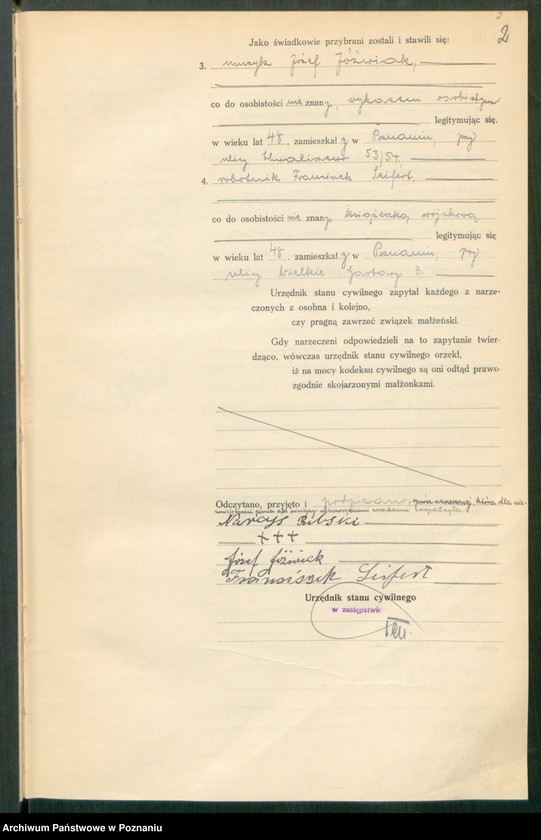 2
Jako świadkowie przybrani zostali i stawili się:
3. muzyk Józef Jóźwiak,
co do osobistości nie znany, wykazem osobistym
legitymując się,
w wieku lat 48, zamieszkały w Poznaniu, przy
ulicy 53/54.
4. robotnik Franciszek Seifert,
co do osobistości nie znany książeczką wojskową
legitymując się
w wieku lat 48, zamieszkały w Poznaniu, przy
ulicy Wielkie Garbary 3.
Urzędnik stanu cywilnego zapytał każdego z narze-
czonych z osobna i kolejno,
czy pragną zawrzeć związek małżeński.
Gdy narzeczeni odpowiedzieli na to zapytanie twier-
dząco, wówczas urzędnik stanu cywilnego orzekł,
iż na mocy kodeksu cywilnego są oni odtąd prawo-
zgodnie skojarzonymi małżonkami.
Odczytano, przyjęto i podpisano, która dla nie-
Narcys Ribski
+++
Józef Jóźwiak
Franciszek Seifert
Urzędnik stanu cywilnego
w zastępstwie
Archiwum Państwowe w Poznaniu